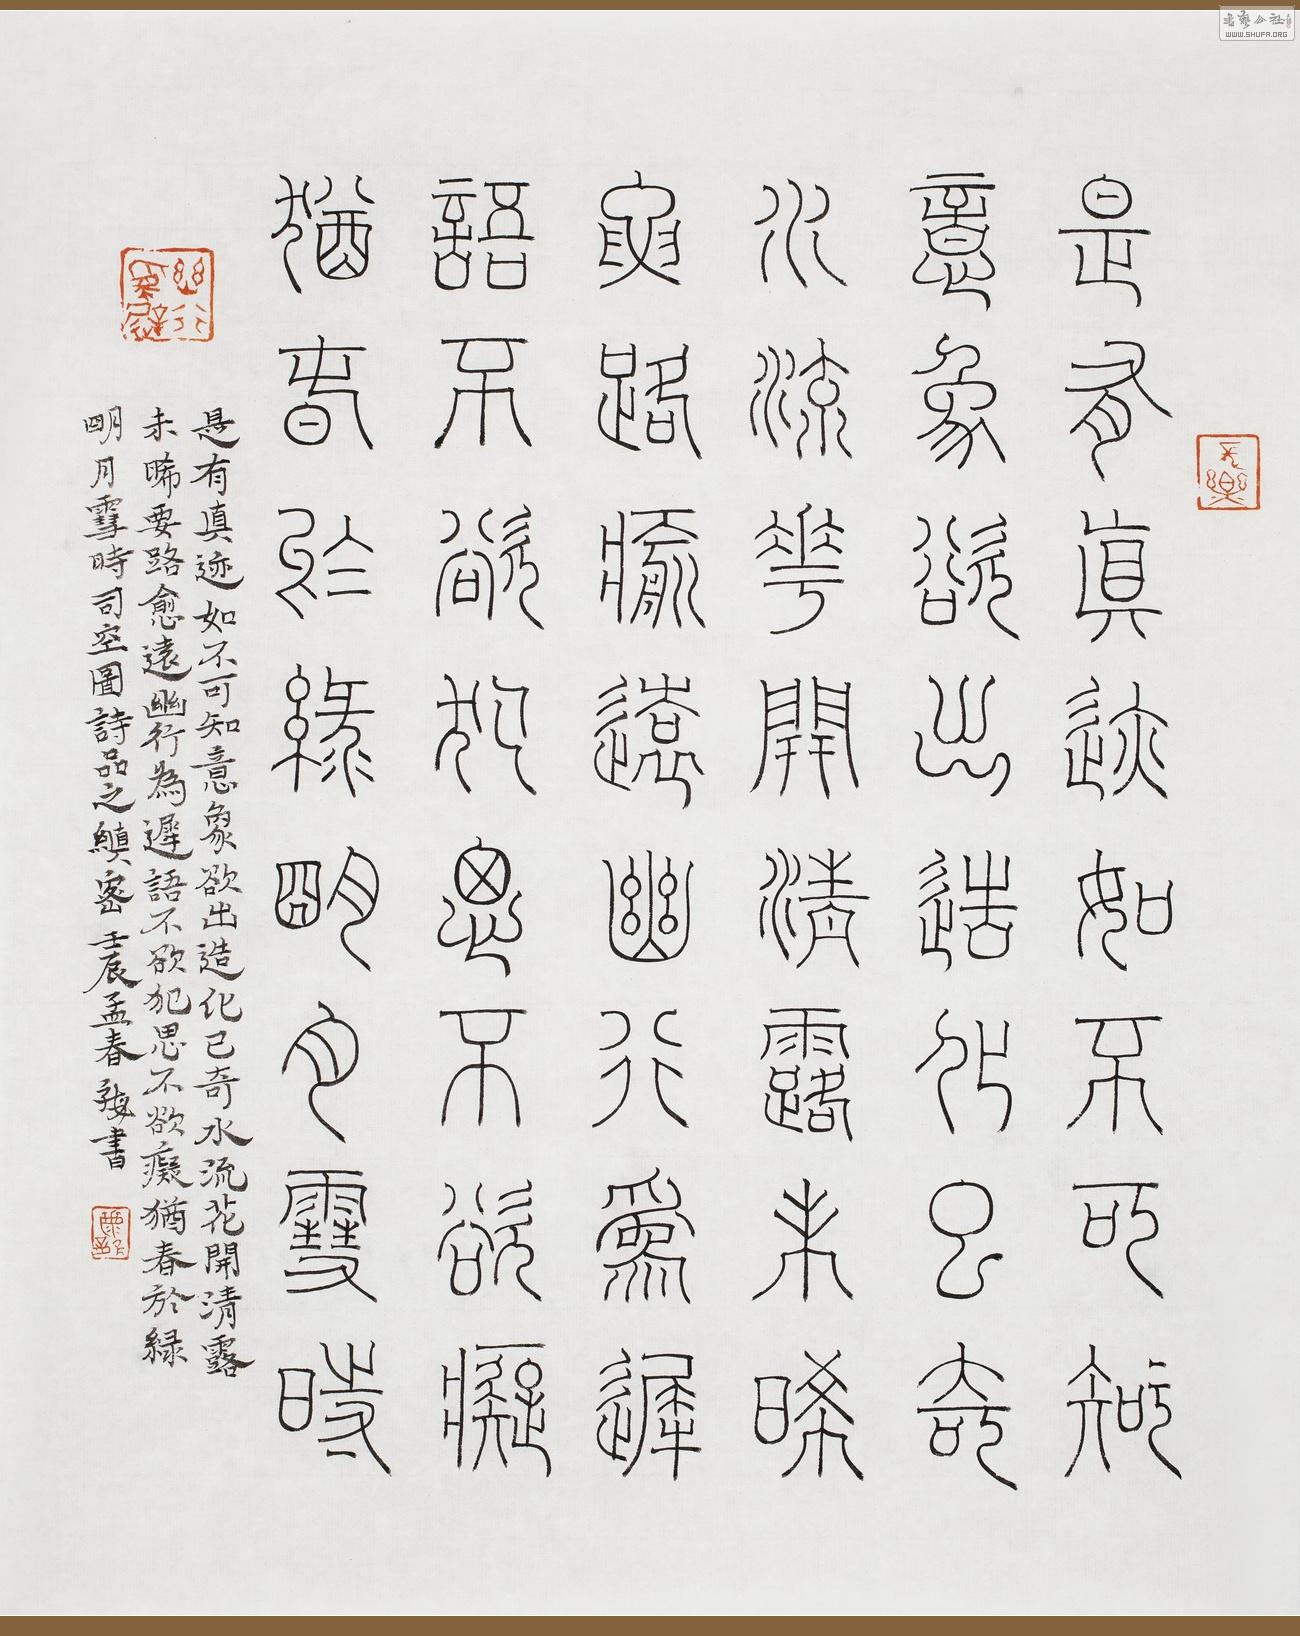 是有眞迹如不可知
意象欲出造化已奇
水流花開清露未晞
要路愈遠幽行為遲
語不欲犯思不欲癡
猶春於綠明月雪時
是有真迹如不可知意象欲出造化已奇水流花開清露
未晞要路愈遠幽行為遲語不欲犯思不欲癡猶春於綠
明月雪時司空圖詩品之縝密壬辰孟春 書
WWW.SHUFA.ORG